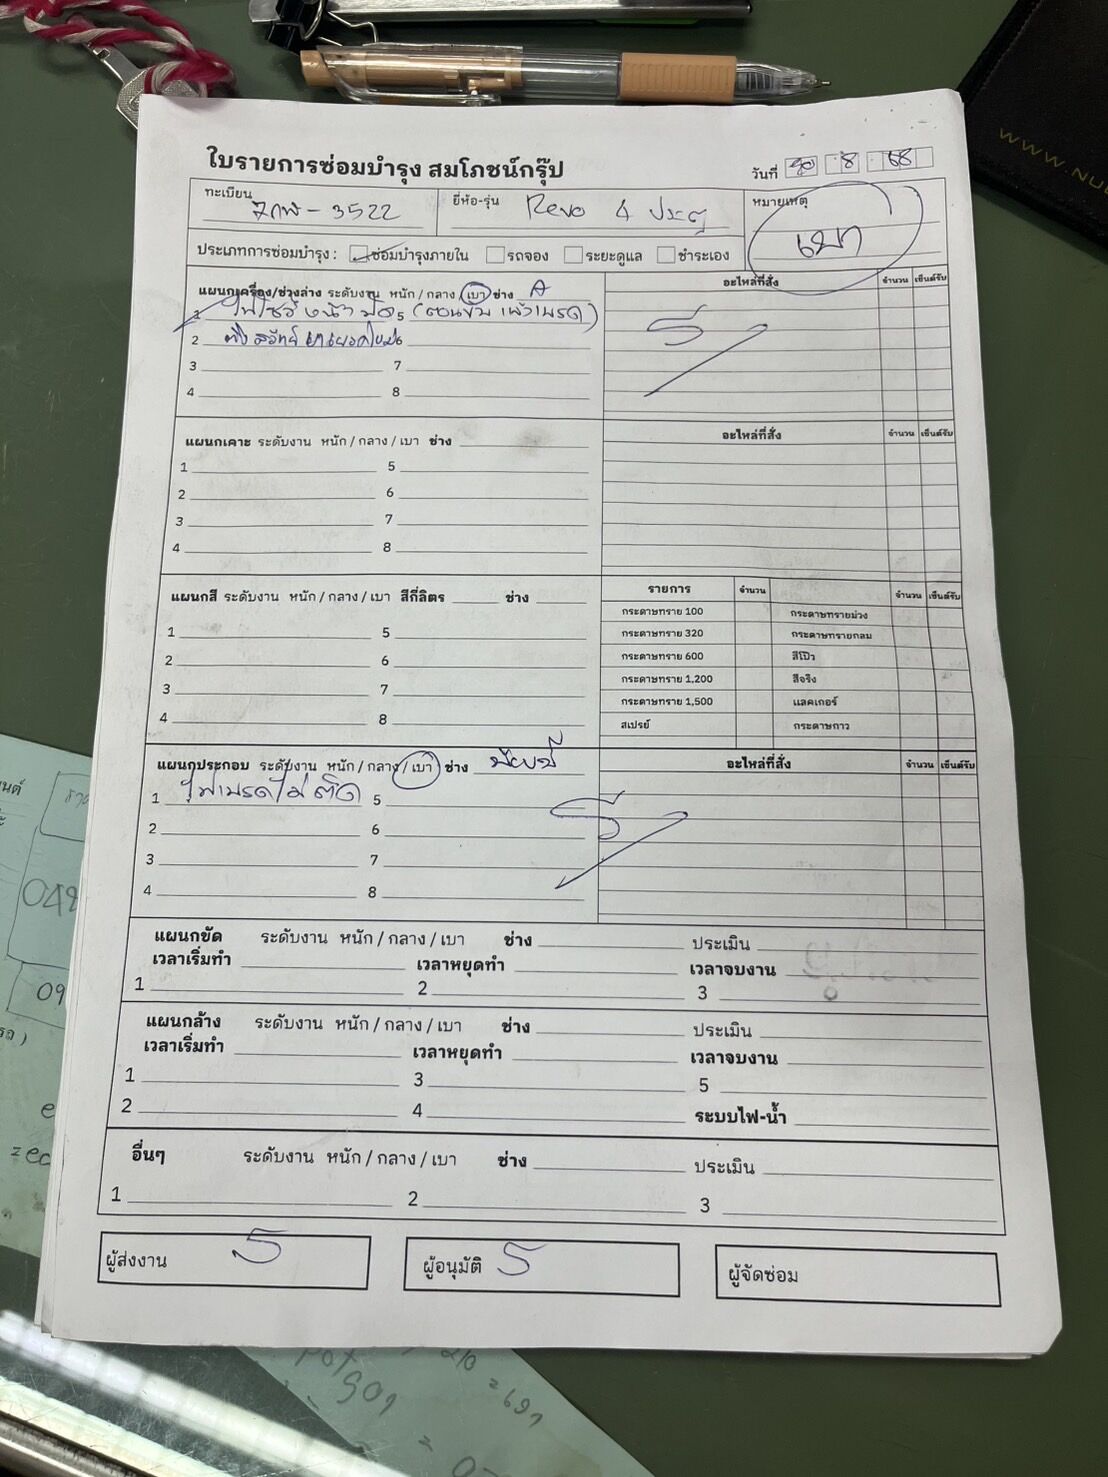 ใบรายการซ่อมบำรุง สมโภชน์กรุ๊ป
วันที่ 8 68
ทะเบียน 3522
ยี่ห้อ-รุ่น Revo 4 ประตู
หมายเหตุ
เบา
ประเภทการซ่อมบำรุง : ซ่อมบำรุงภายใน รถจอง ระยะดูแล ชำระเอง
แผนกเครื่อง/ช่วงล่าง ระดับงาน หนัก / กลาง / เบา ช่าง A
อะไหล่ที่สั่ง จำนวน เซ็นต์รับ
1 5
2 6
3 7
4 8
แผนกเคาะ ระดับงาน หนัก / กลาง / เบา ช่าง
อะไหล่ที่สั่ง จำนวน เซ็นต์รับ
1 5
2 6
3 7
4 8
แผนกสี ระดับงาน หนัก / กลาง / เบา สีกี่ลิตร ช่าง
รายการ จำนวน จำนวน เซ็นต์รับ
1 5
2 6
3 7
4 8
กระดาษทราย 100 กระดาษทรายม่วง
กระดาษทราย 320 กระดาษทรายกลม
กระดาษทราย 600 สีโป๊ว
กระดาษทราย 1,200 สีจริง
กระดาษทราย 1,500 แลคเกอร์
สเปรย์ กระดาษกาว
แผนกประกอบ ระดับงาน หนัก / กลาง / เบา ช่าง
อะไหล่ที่สั่ง จำนวน เซ็นต์รับ
1 ไฟเบรคไม่ติด 5
2 6
3 7
4 8
แผนกขัด ระดับงาน หนัก / กลาง / เบา ช่าง ประเมิน
เวลาเริ่มทำ เวลาหยุดทำ เวลาจบงาน
1 2 3
แผนกล้าง ระดับงาน หนัก / กลาง / เบา ช่าง ประเมิน
เวลาเริ่มทำ เวลาหยุดทำ เวลาจบงาน
1 3 5
2 4 ระบบไฟ-น้ำ
อื่นๆ ระดับงาน หนัก / กลาง / เบา ช่าง ประเมิน
1 2 3
ผู้ส่งงาน
ผู้อนุมัติ
ผู้จัดซ่อม